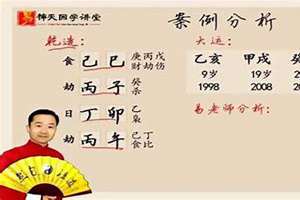 国学讲堂
案例分析
乾造:
食 己 巳 庚丙戊
财劫伤
劫 丙 子 癸
杀
日 丁 卯 乙
枭
劫 丙 午 己丁
食比
大运:
乙亥 甲戌
9岁 19岁
1998 2008
易老师分析: